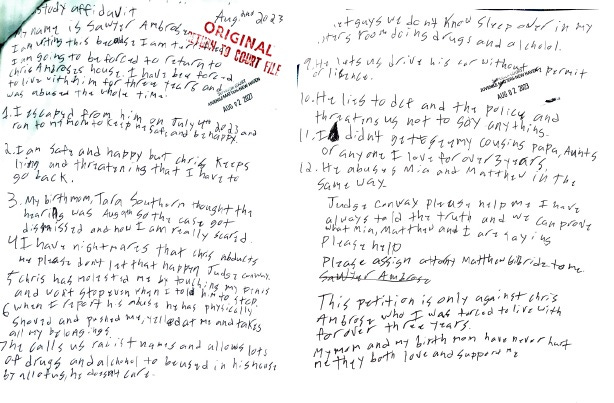 study affidavit
Aug 2023
My name is Sawyer Ambrose
I am writing this because I am
I am going to be forced to return to
Chris Ambroses house. I have been forced
to live with him for three years and
was abused the whole time.
ORIGINAL
RETURN TO COURT FILE
AUG 02 2023
1. I escaped from him on July 2023
ran to my mom to keep me safe and be happy.
2. I am safe and happy but Chris keeps
lying and threatening that I have to
go back.
3. My birth mom, Tara Southern thought the
hearing was so the case got
dismissed and now I am really scared.
4 I have nightmares that Chris abducts
me please don't let that happen Judge Conway.
5 Chris has molested me by touching my penis
and wont stop even when I told him to stop.
6 when I report his abuse he has physically
shoved and pushed me, yelled at me and takes
all my belongings
7 he calls us racist names and allows lots
of drugs and alchohol to be used in his house
by all of us, he doesn't care.
guys we dont know sleep over in my
sisters room doing drugs and alchohol.
9. He lets us drive his car without permit
or licence.
AUG 02 2023
10. He lies to dcf and the police and
threating us not to say anything.
11. I didn't get to see my cousins papa, Aunts
or anyone I love for over 3 years.
12. He abuses Mia and Matthew in the
same way.
Judge Conway please help me I have
always told the truth and we can prove
what Mia, Matthew and I are saying
Please help
Please assign Matthew to me.
Sawyer Ambrose
This petition is only against Chris
Ambrose who I was forced to live with
for over three years.
My mom and my birth mom have never hurt
me they both love and support me